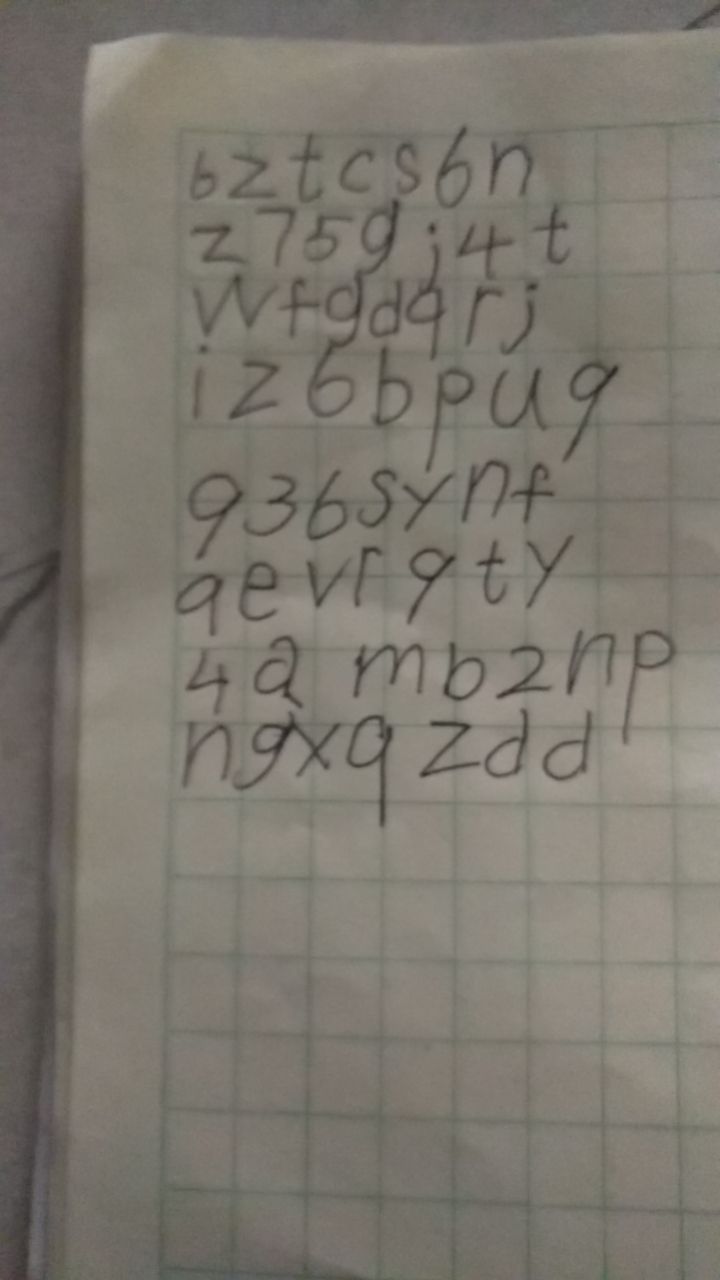 bztcs6n
z75gj4t
wfgdqrj
iz6bpuq
936synf
qevrqty
4a mbznp
ngxqzdd